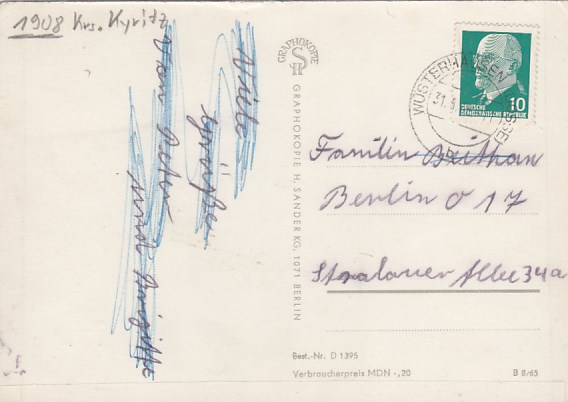 1908 Krs. Kyritz
Viele
Grüße
von Peter
und Brigitte
GRAPHOKOPIE
GRAPHOKOPIE H. SANDER KG, 1071 BERLIN
WUSTERHAUSEN
DOSSE
31.
10
DEUTSCHE
DEMOKRATISCHE REPUBLIK
Familin
Berlin O 17
Stralauer Allee 34a
Best.-Nr. D 1395
Verbraucherpreis MDN -,20
B 8/65